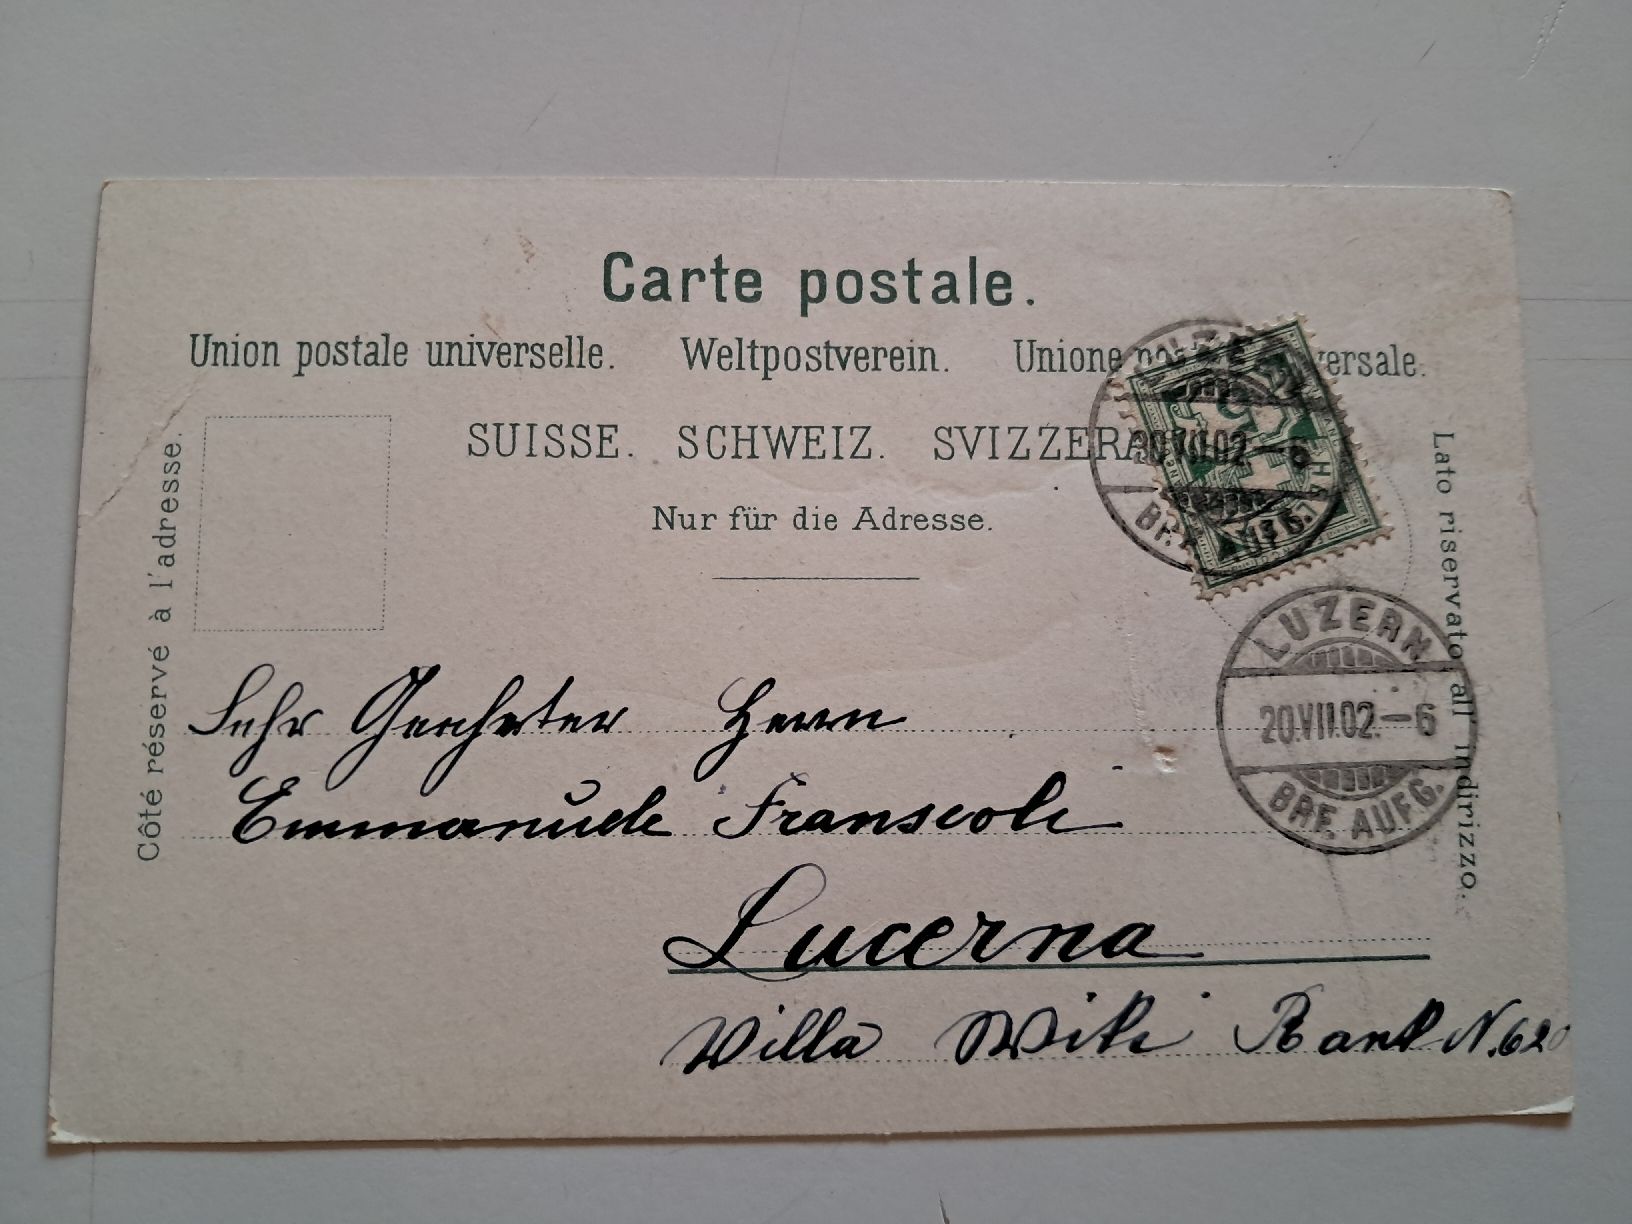 Carte postale.
Union postale universelle. Weltpostverein. Unione postale universale.
SUISSE. SCHWEIZ. SVIZZERA.
Nur für die Adresse.
Côté réservé à l'adresse.
Lato riservato all indirizzo.
20.VII.02.-6
BRF. AUFG.
LUZERN
20.VII.02.-6
BRF. AUFG.
Sehr Geehrter Herrn
Emmanuele Franscoli
Lucerna
Villa Wiki N. 620